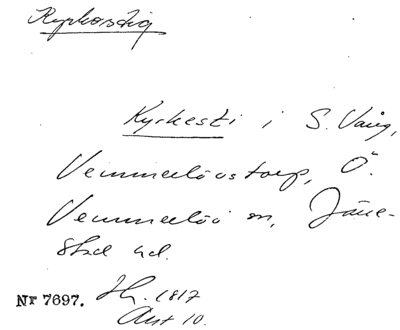 Kyrkostig
Kyrkesti i S. Vång,
Vemmerlövstorp, Ö.
Vemmerlöv sn, Järre-
stad hd.
Nr 7697. Hr. 1817
Akt 10.